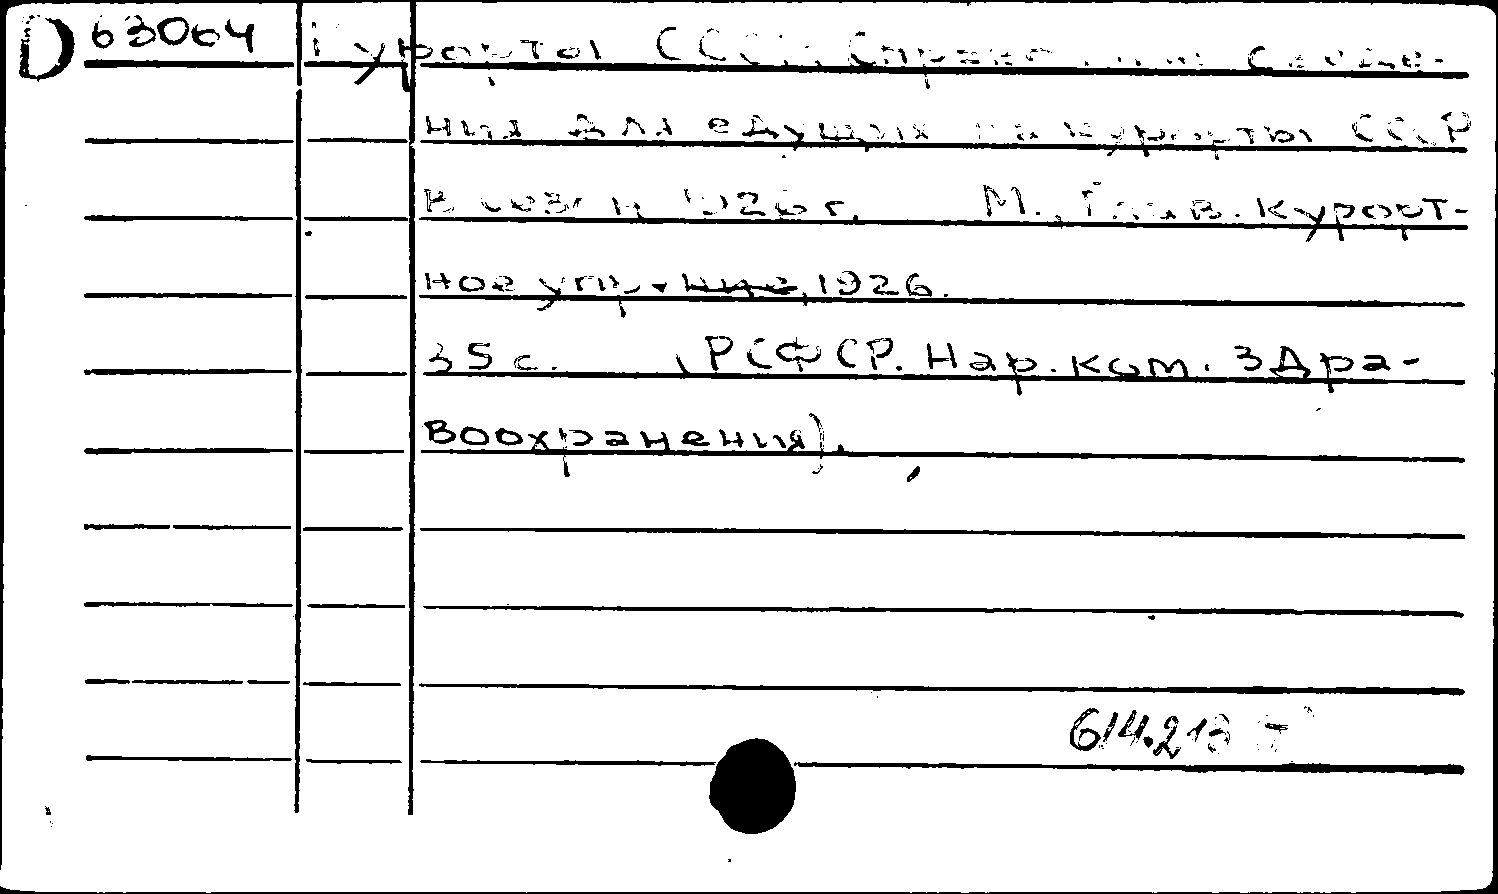 D 63064 Курорты СССР. Справочные сведе-
ния для едущих на курорты СССР
в сезон 1926 г. М., Глав. курорт-
ное упр-ние, 1926.
35 с. (РСФСР. Нар. ком. здра-
воохранения).
614.213